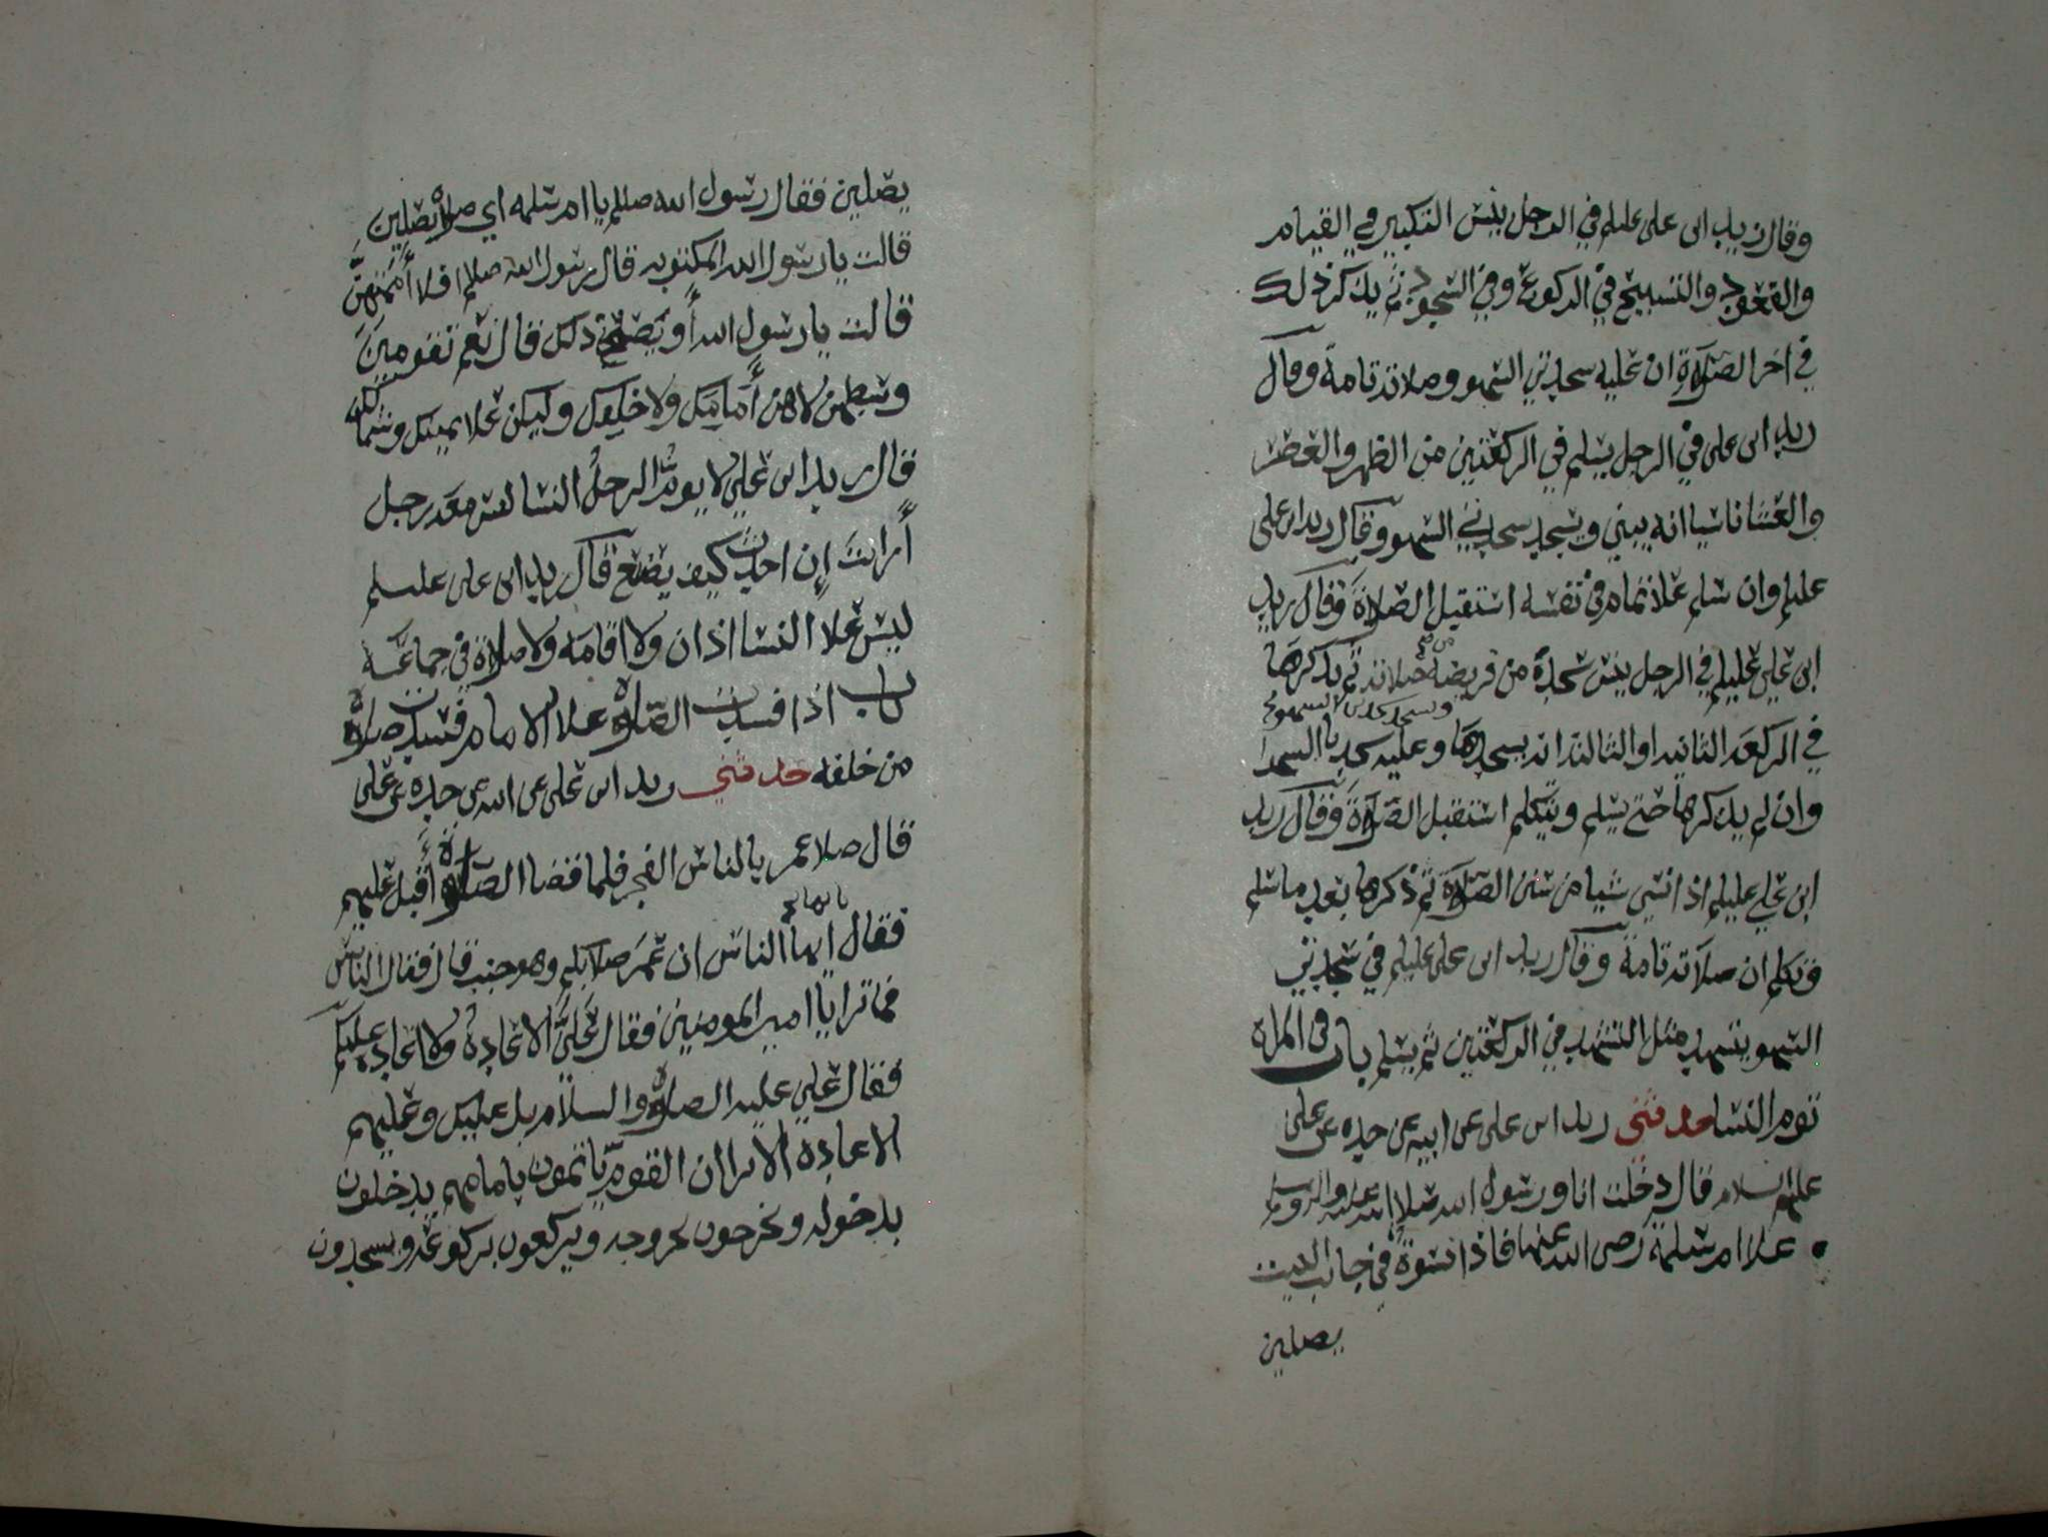 وقال زيد ابن علي عليلم في الرجل ينس التكبير في القيام
والقعود والتسبيح في الركوع وفي السجود ثم يذكر ذلك
في اخر الصلاة ان عليه سجدتي السهو وصلاته تامة وقال
زيد ابن علي في الرجل يسلم في الركعتين من الظهر والعصر
والعشا ناسيا انه يبني ويسجد سجدتي السهو وقال زيد ابن علي
عليلم وان سلم علا تمام في نفسه استقبل الصلاة وقال زيد
ابن علي عليلم في الرجل ينس سجدة من فريضة صلاته ثم يذكرها
في الركعه الثانيه او الثالثه انه يسجدها وعليه سجدتا السهو
وان لم يذكرها حتى يسلم ويتكلم استقبل الصلاة وقال زيد
ابن علي عليلم اذا نسي شيا من سنن الصلاة ثم ذكرها بعد ما سلم
وتكلم ان صلاته تامة وقال زيد ابن علي عليلم في سجدتي
السهو يتشهد مثل التشهد في الركعتين ثم يسلم باب في المراة
توم النسا حدثني زيد ابن علي عن ابيه عن جده عن علي
عليهم السلام قال دخلت انا ورسول الله صلا الله عليه واله وسلم
علا ام سلمة رضي الله عنها فاذا نسوة في جانب البيت
يصلين
يصلين فقال رسول الله صللم يا ام سلمه اي صلاة يصلين
قالت يا رسول الله المكتوبه قال رسول الله صللم افلا أممتهن
قالت يا رسول الله أو يصلح ذلك قال نعم تقومين
وسطهن لا هن أمامك ولا خلفك وليكن علا يمينك وشمالك
قال زيد ابن علي لا يوم الرجل النسا ليس معه رجل
أرايت إن احدث كيف يصنع قال زيد ابن علي عليلم
ليس علا النسا اذان ولا اقامه ولا صلاة في جماعه
باب اذا فسدت الصلاة علا الامام فسدت صلاة
من خلفه حدثني زيد ابن علي عن ابيه عن جده عن علي
قال صلا عمر بالناس الفجر فلما قضا الصلاة أقبل عليهم
فقال ايها الناس ان عمر صلا بكم وهو جنب قال فقال الناس
فما ترا يا امير المومنين فقال علي الاعادة ولا اعادة عليكم
فقال علي عليه الصلاة والسلام بل عليك وعليهم
الاعادة الا ترا ان القوم ياتمون بامامهم يدخلون
بدخوله ويخرجون بخروجه ويركعون بركوعه ويسجدون